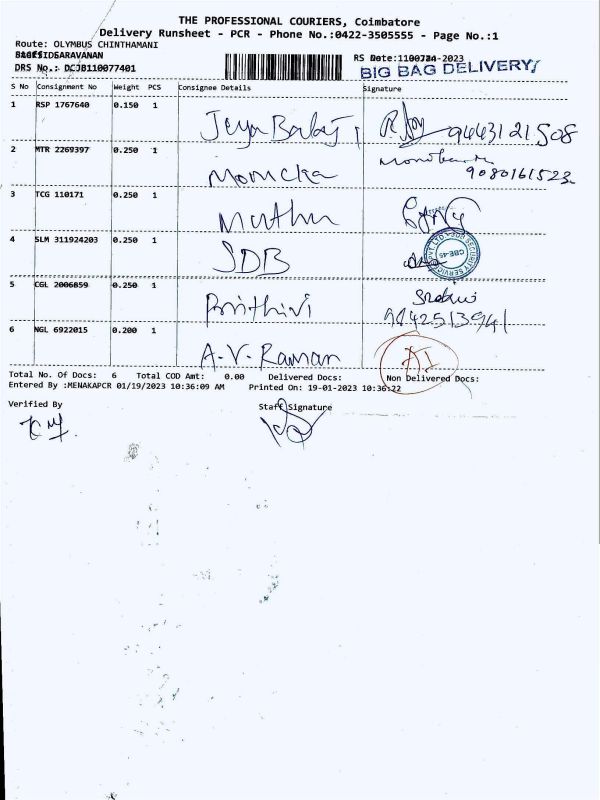 THE PROFESSIONAL COURIERS, Coimbatore
Delivery Runsheet - PCR - Phone No.:0422-3505555 - Page No.:1
Route: OLYMBUS CHINTHAMANI
DRS No.: DCJB110077401
RS Date:
BIG BAG DELIVERY/
S No Consignment No Weight PCS Consignee Details Signature
1 RSP 1767640 0.150 1 Jeya Balaj 9443121508
2 MTR 2269397 0.250 1 Momcka 9080161523
3 TCG 110171 0.250 1 Muthu
4 SLM 311924203 0.250 1 SDB
SECURITY SERVICE CBE-45
5 CGL 2006859 0.250 1 Prithivi 9442513941
6 NGL 6922015 0.200 1 A.V. Raman
Total No. Of Docs: 6 Total COD Amt: 0.00 Delivered Docs: Non Delivered Docs:
Entered By :MENAKAPCR 01/19/2023 10:36:09 AM Printed On: 19-01-2023 10:36:22
Verified By Staff Signature